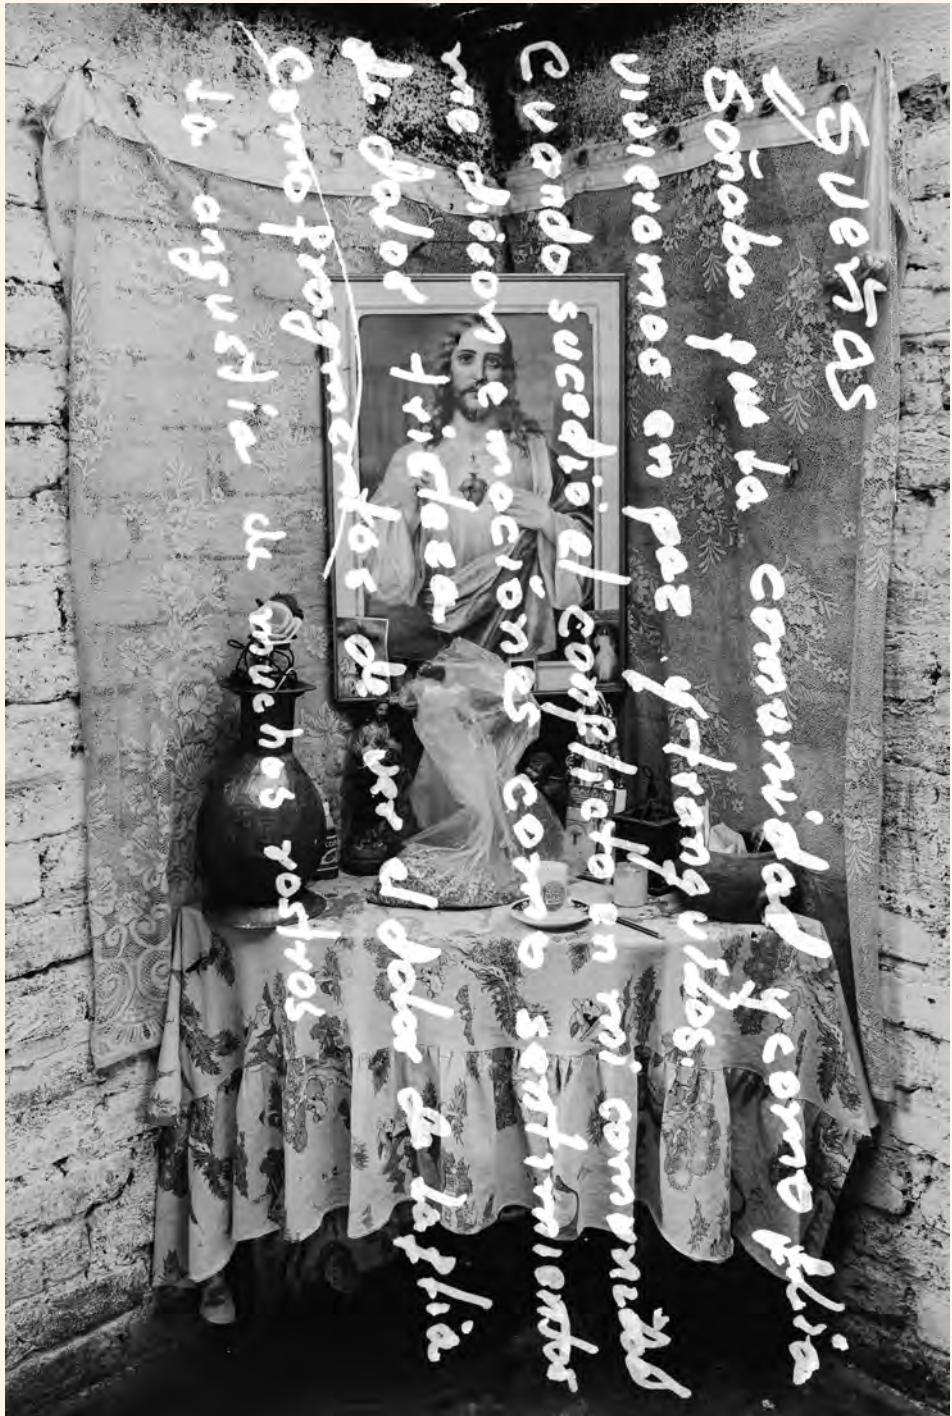 Sueños
Soñaba que la comunidad y como flia
vivieramos en paz. y tranquilos.
Cuando sucedio el conflicto en mi comunidad
me dieron emociones como sentimientos
de dolor tristeza
Como fragmentos de ver el dolor de la flia
la angustia de muchos rostros